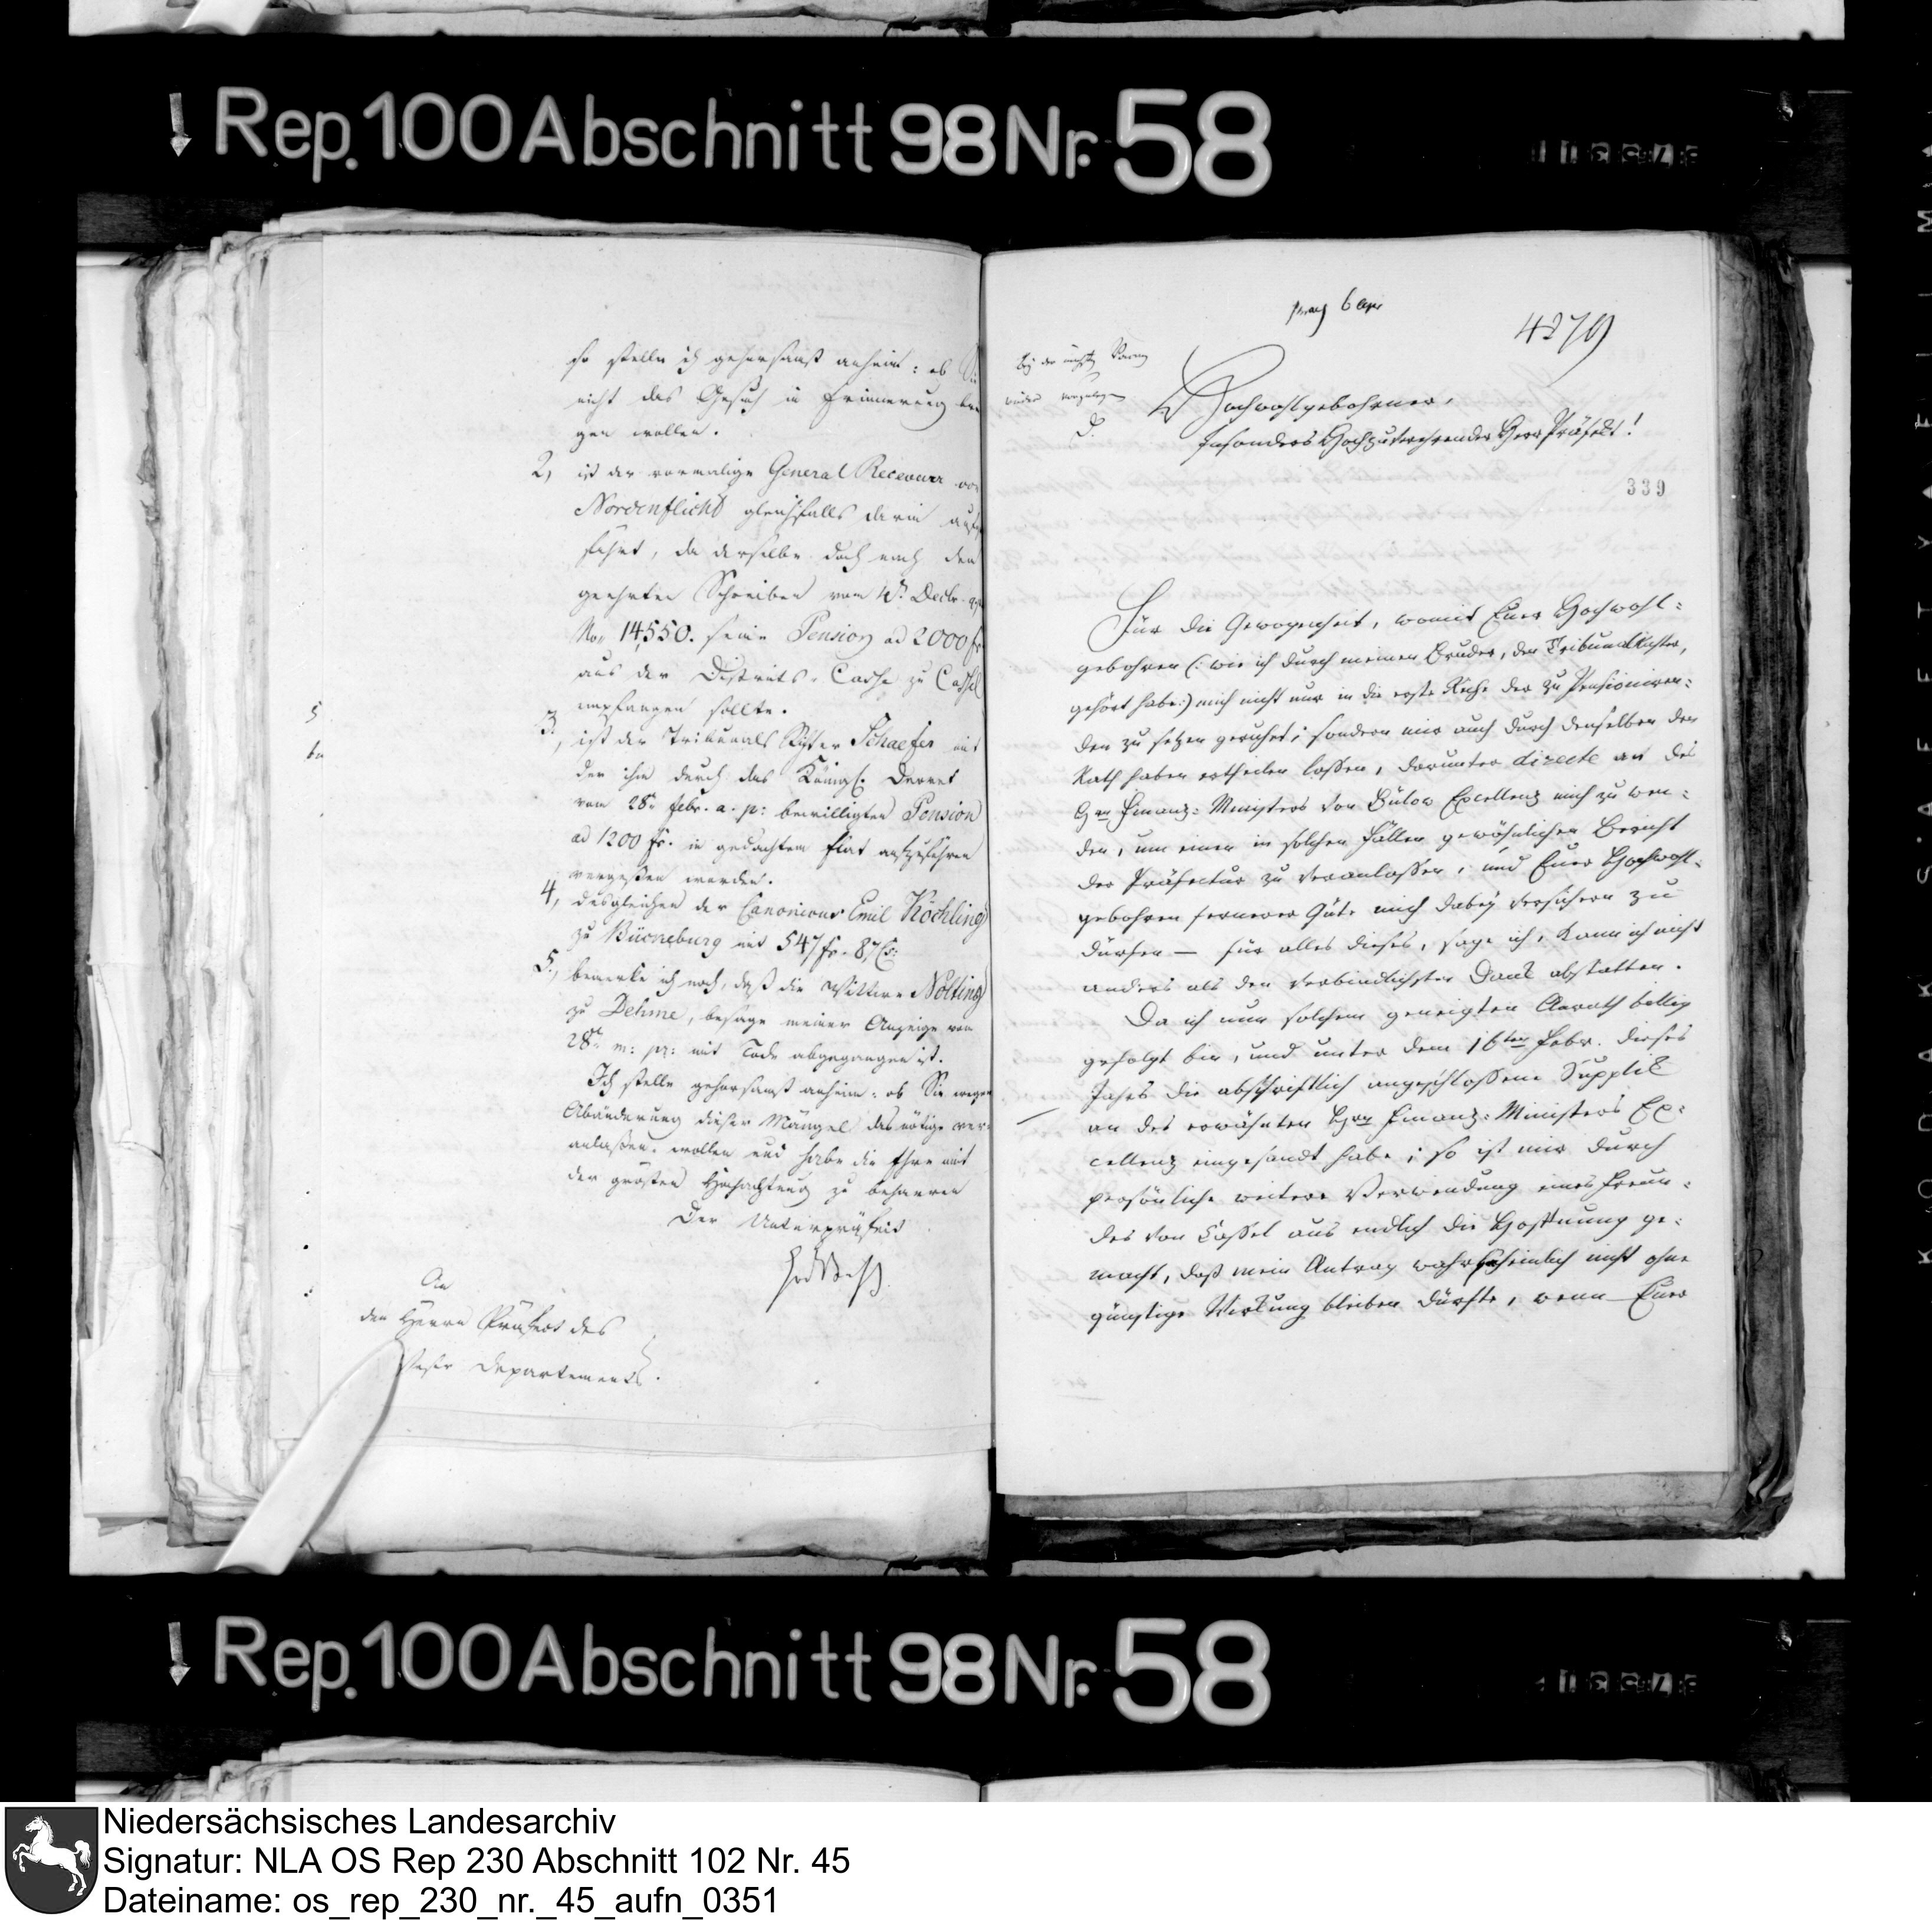 Rep. 100 Abschnitt 98 Nr. 58
so stelle ich gehorsamst anheim: ob Sie
nicht das Gesuch in Erinnerung brin
gen wollen.
2, ist der vormalige General Receveur von
Nordenflicht gleichfalls darin aufge
führt, da derselbe doch nach dem
geehrten Schreiben vom 4n Decbr.
No. 14,550. seine Pension ad 2000 fr
aus der Districts-Casse zu Cassel
empfangen sollte.
3., ist der Tribunals Richter Schaefer mit
der ihm durch das Königl. Decret
vom 28n Febr. a. p: bewilligten Pension
ad 1200 fr. in gedachtem Etat aufzuführen
vergessen worden.
4, desgleichen der Canonicus Emil Köchling
zu Bückeburg mit 547 fr. 87 Cs:
5., bemerke ich noch, daß die Wittwe Nolting
zu Dehme, besage meiner Anzeige vom
28n m: pr: mit Tode abgegangen ist.
Ich stelle gehorsamst anheim: ob Sie wegen
Abänderung dieser Mängel das nötige ver-
anlaßen wollen und habe die Ehre mit
der grösten Hochachtung zu beharren
Der Unterpräfect
An
den Herrn Präfect des
Weser Departements.
6 Apr
4279
bey der
wieder vorzulegen
D.
Hochwohlgebohrner,
Insonders Hochzuverehrender Herr Präfekt!
339
Für die Gewogenheit, womit Euer Hochwohl-
gebohren (: wie ich durch meinen Bruder, den Tribunalrichter,
gehört habe:) mich nicht nur in die erste Reihe der zu Pensioniren-
den zu setzen geruhet; sondern mir auch durch denselben den
Rath haben ertheilen lassen, darunter directe an des
Hrn Finanz-Ministers von Bülow Excellenz mich zu wen-
den, um einen in solchen Fällen gewöhnlichen Bericht
der Präfectur zu veranlassen; und Euer Hochwohl-
gebohren fernerer Güte mich dabey versichern zu
dürfen — für alles dieses, sage ich, kann ich nicht
anders als den verbindlichsten Dank abstatten.
Da ich nun solchem geneigten Anrath billig
gefolgt bin, und unter dem 16ten Febr. dieses
Jahrs die abschriftlich angeschlossene Supplik
an des erwähnten Hrn Finanz-Ministers Ex-
cellenz eingesandt habe; so ist mir durch
persönliche weitere Verwendung eines Freun-
des von Cassel aus endlich die Hoffnung ge-
macht, daß mein Antrag wahrscheinlich nicht ohne
günstige Wirkung bleiben dürfte, wenn Euer
Rep. 100 Abschnitt 98 Nr. 58
Niedersächsisches Landesarchiv
Signatur: NLA OS Rep 230 Abschnitt 102 Nr. 45
Dateiname: os_rep_230_nr._45_aufn_0351